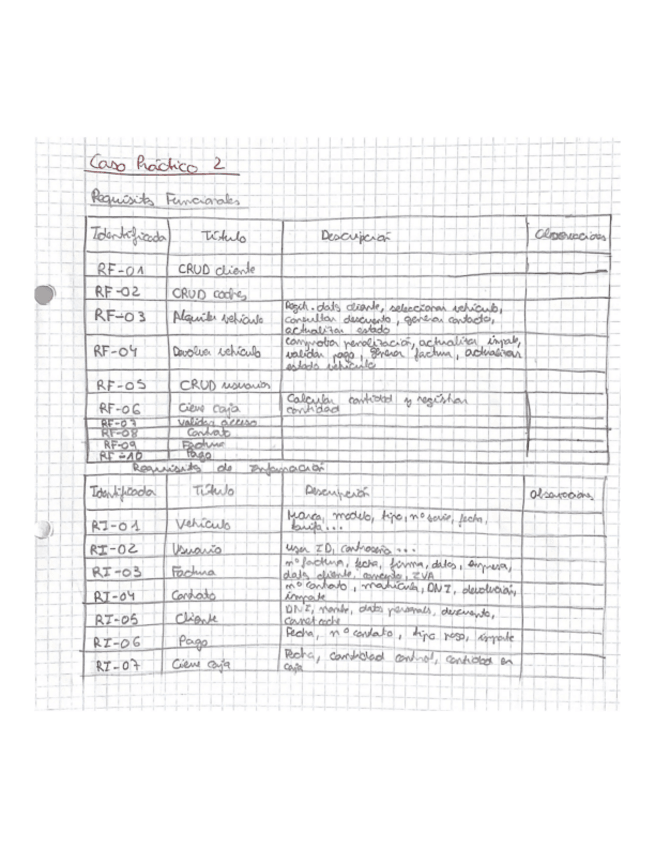 Caso Práctico 2
Requisitos Funcionales
Identificador Título Descripción Observaciones
RF-01 CRUD cliente
RF-02 CRUD coches
RF-03 Alquilar vehículo
datos cliente, seleccionar vehículo,
consultar descuento, generar contrato,
actualizar estado
RF-04 Devolver vehículo
comprobar penalización, actualizar importe,
validar pago, generar factura, actualizar
estado vehículo
RF-05 CRUD usuarios
RF-06 Cierre caja
Calcular cantidad y registrar
cantidad
RF-07 Validar acceso
RF-08 Contrato
RF-09 Factura
RF-10 Pago
Requisitos de Información
Identificador Título Descripción Observaciones
RI-01 Vehículo
Marca, modelo, tipo, nº serie, fecha,
tarifa...
RI-02 Usuario user ID, contraseña...
RI-03 Factura
nº factura, fecha, firma, datos, empresa,
datos cliente, concepto, IVA
RI-04 Contrato
nº contrato, matrícula, DNI, devolución,
importe
RI-05 Cliente
DNI, nombre, datos personales, descuento,
carnet coche
RI-06 Pago Fecha, nº contrato, tipo pago, importe
RI-07 Cierre caja
Fecha, cantidad control, cantidad en
caja